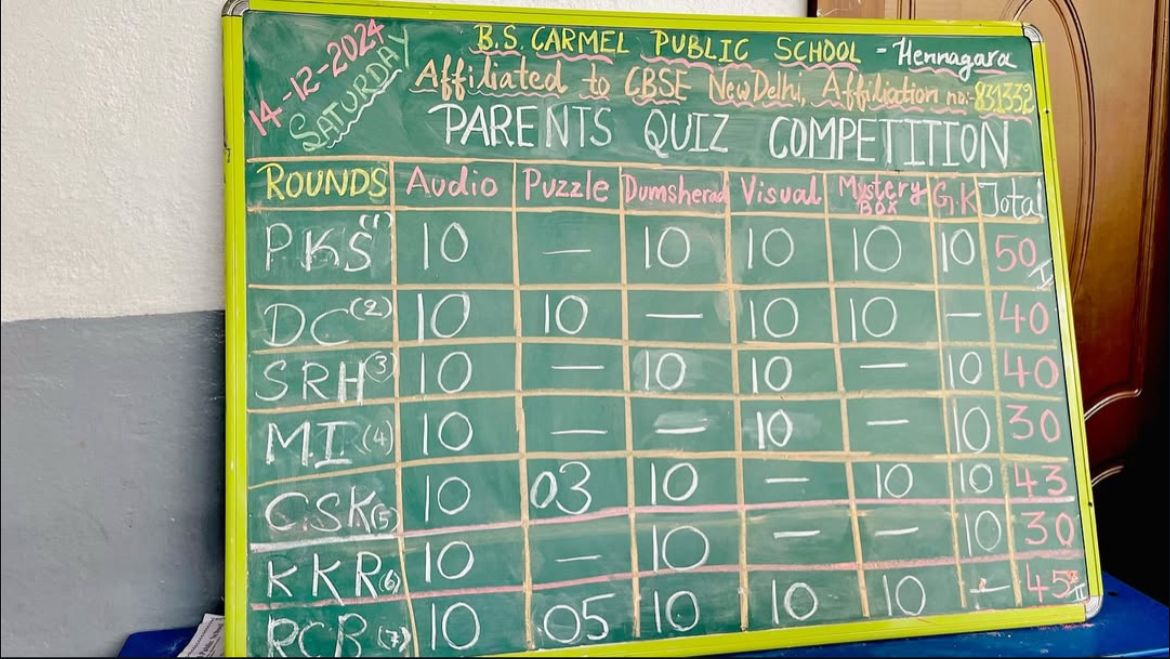 14-12-2024
SATURDAY
B.S. CARMEL PUBLIC SCHOOL - Hennagara
Affiliated to CBSE New Delhi, Affiliation no:- 831332
PARENTS QUIZ COMPETITION
ROUNDS Audio Puzzle Dumsherad Visual Mystery BOX G.K Total
PKS (1) 10 — 10 10 10 10 50 I
DC (2) 10 10 — 10 10 — 40
SRH (3) 10 — 10 10 — 10 40
M.I (4) 10 — — 10 — 10 30
CSK (5) 10 03 10 — 10 10 43
KKR (6) 10 — 10 — — 10 30
RCB (7) 10 05 10 10 10 — 45 II